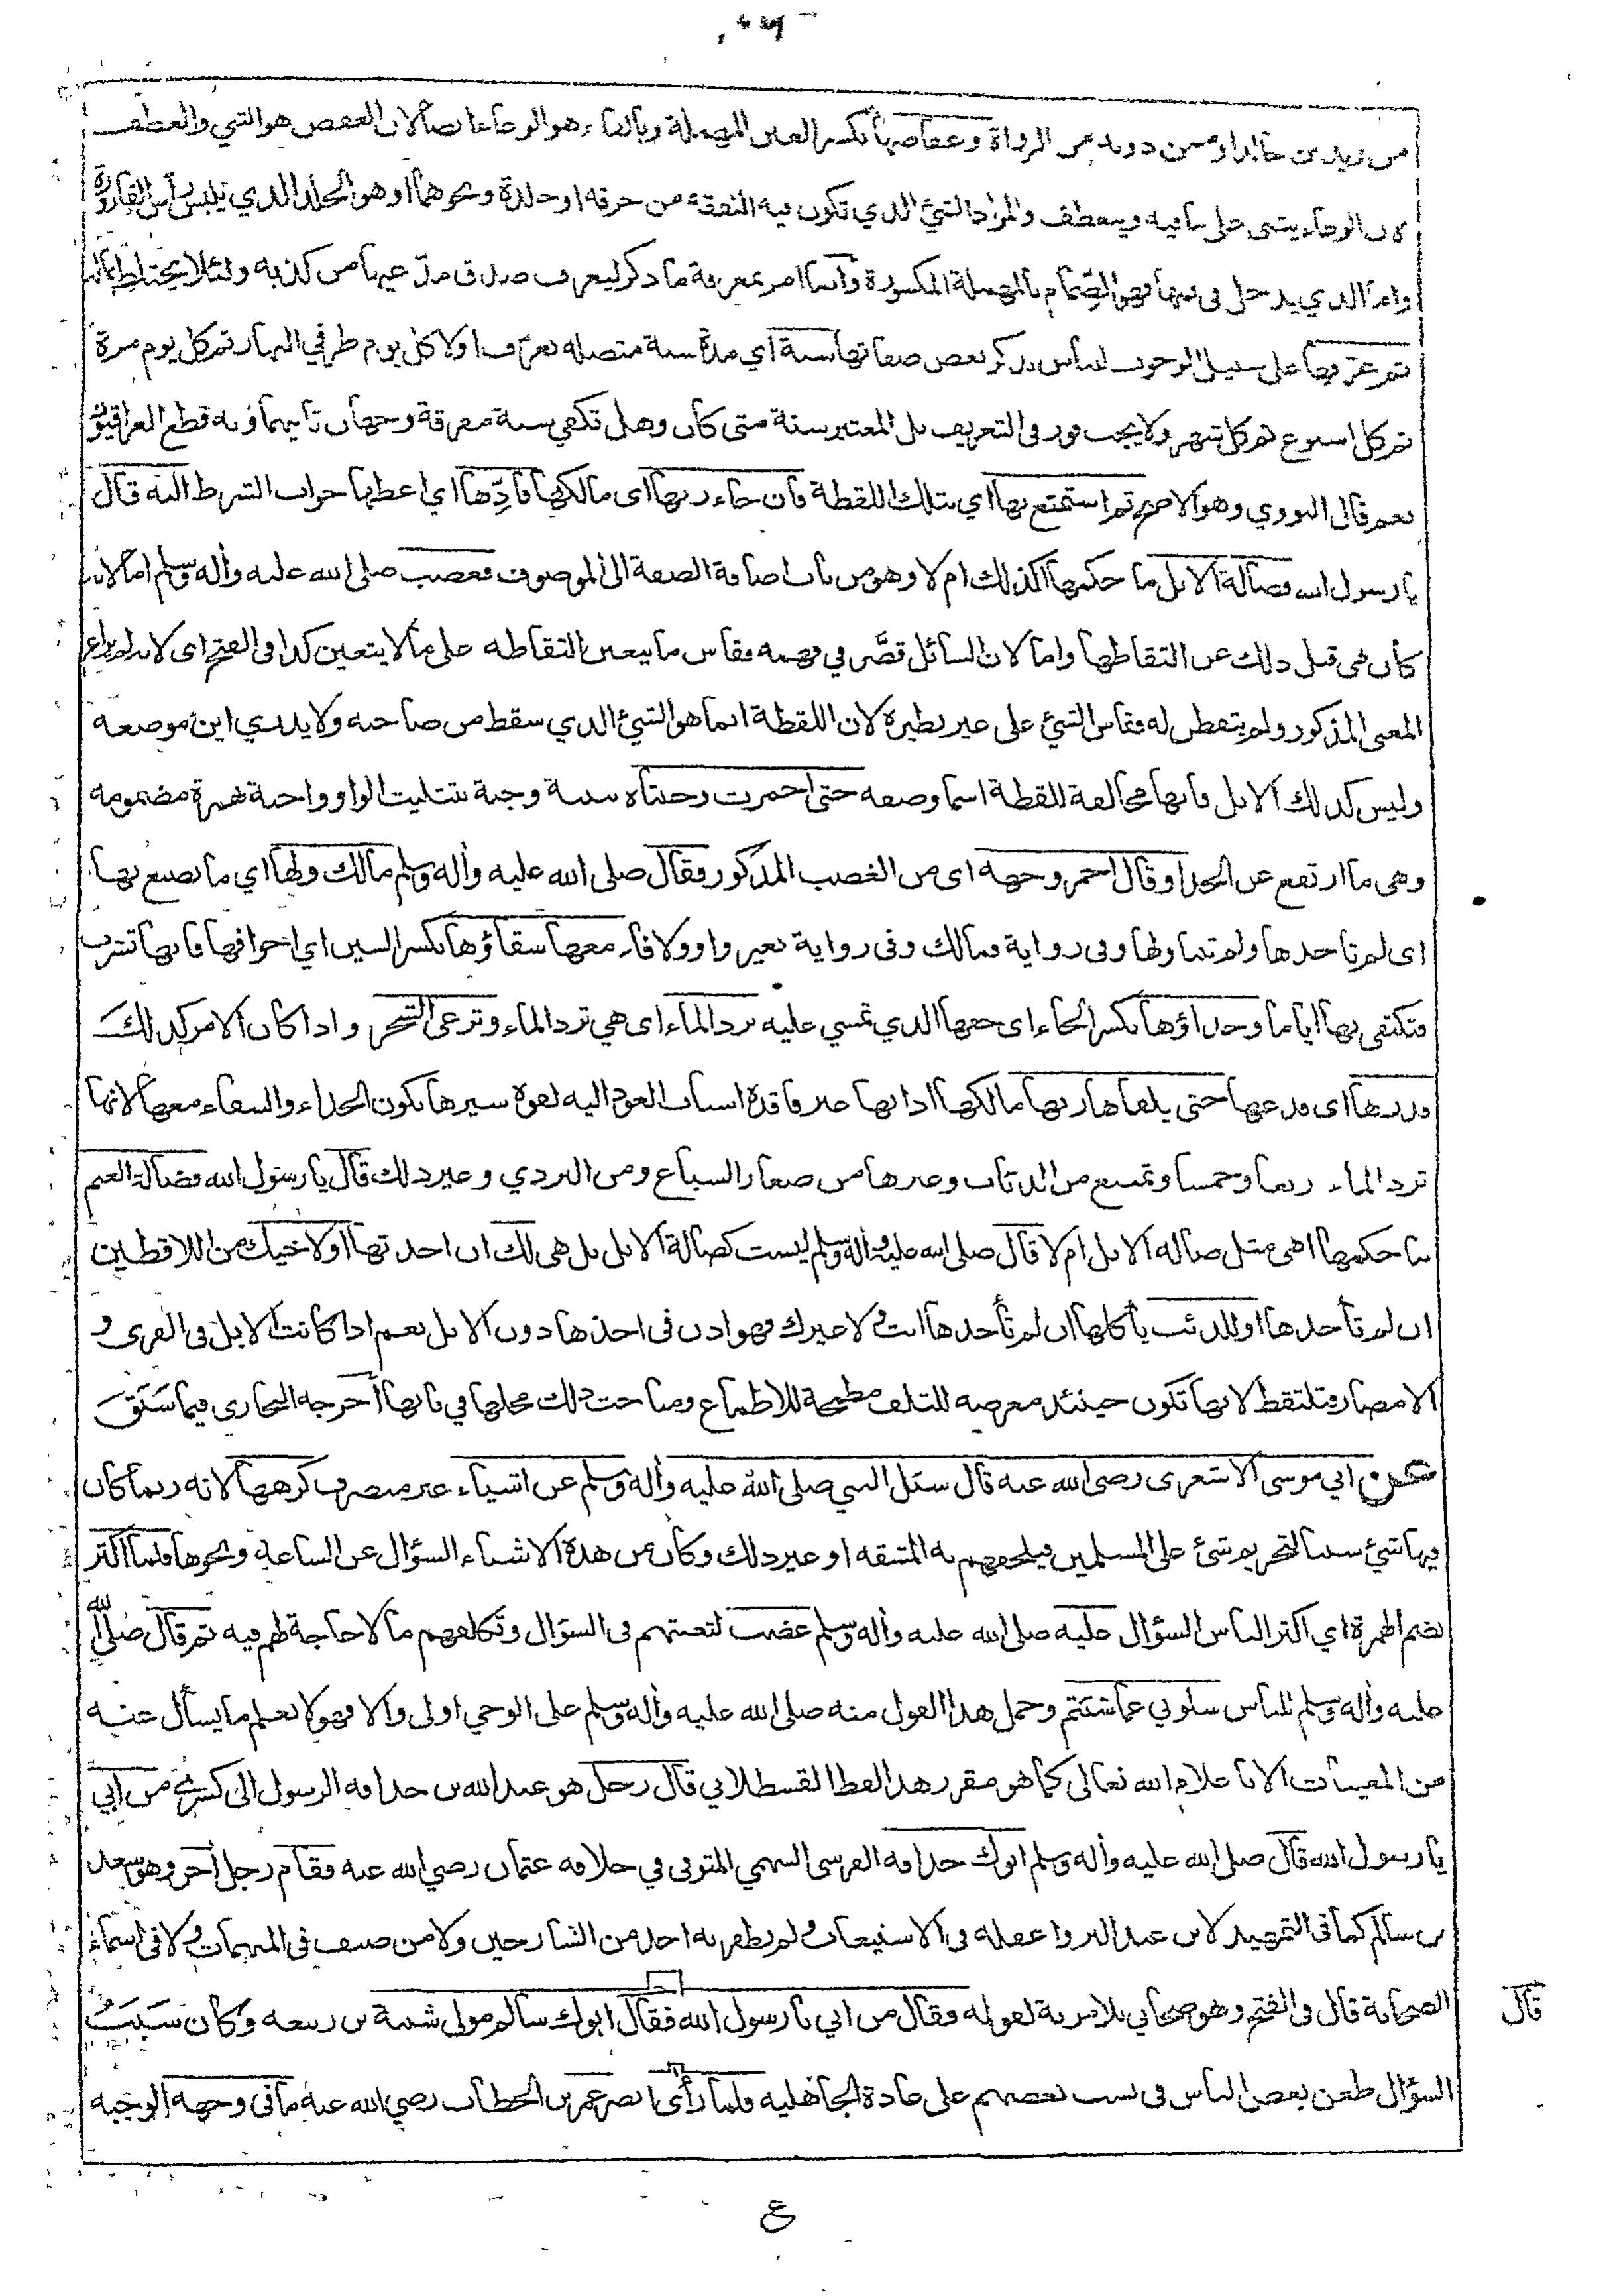 من زيد بن خالد او ممن دونه من الرواة وعفاصها بكسر العين المهملة وبالفاء هو الوعاء ايضا لان العفص هو الثني والعطف
لان الوعاء يثنى على ما فيه وينعطف والمراد الشئ الذي تكون فيه النفقة من خرقة او جلدة ونحوهما او هو الجلد الذي يلبس رأس القارورة
واما الذي يدخل في فمها فهو الصمام بالمهملة المكسورة وانما امر بمعرفة ما ذكر ليعرف صدق مدعيها من كذبه ولئلا يختلط بماله
ثم عرفها على سبيل الوجوب للناس بذكر بعض صفاتها سنة اي مدة سنة متصلة تعرف اولا كل يوم طرفي النهار ثم كل يوم مرة
ثم كل اسبوع ثم كل شهر ولا يجب فور في التعريف بل المعتبر سنة متى كان وهل تكفي سنة مفرقة وجهان ثانيهما وبه قطع العراقيون
نعم قال النووي وهو الاصح ثم استمتع بها اي بتلك اللقطة فان جاء ربها اى مالكها فادِّها اي اعطها جواب الشرط اليه قال
يا رسول الله فضالة الابل ما حكمها اكذلك ام لا وهو من باب اضافة الصفة الى الموصوف فغضب صلى الله عليه وأله وسلم اما لانه
كان نهى قبل ذلك عن التقاطها واما لان السائل قصَّر في فهمه فقاس ما يتعين التقاطه على ما لا يتعين كذا في الفتح اى لانه لم يراع
المعنى المذكور ولم يتفطن له فقاس الشئ على غير نظيره لان اللقطة انما هو الشيئ الذي سقط من صاحبه ولا يدري اين موضعه
وليس كذلك الابل فانها مخالفة للقطة اسما وصفه حتى احمرت وجنتاه تثنية وجنة بتثليث الواو واجنة بهمزة مضمومه
وهى ما ارتفع عن الخد او قال احمر وجهه اى من الغضب المذكور فقال صلى الله عليه وأله وسلم مالك ولها اي ما تصنع بها
اى لم تاخذها ولم تتناولها وفى رواية فمالك وفى رواية بغير واو ولا فاء معها سقاؤها بكسر السين اي اجوافها فانها تشرب
فتكتفى بها اياما وحذاؤها بكسر الحاء اى خفها الذي تمشي عليه ترد الماء اى هي ترد الماء وترعى الشجر واذا كان الامر كذلك
فذرها اى فدعها حتى يلقاها ربها مالكها اذ انها غير فاقدة اسباب العود اليه لقوة سيرها بكون الحذاء والسقاء معها لانها
ترد الماء ربعا وخمسا وتمتنع من الذئاب وغيرها من صغار السباع ومن التردي وغير ذلك قال يا رسول الله فضالة الغنم
ما حكمها اهى مثل ضاله الابل ام لا قال صلى الله عليه وأله وسلم ليست كضالة الابل بل هى لك ان اخذتها او لاخيك من اللاقطين
ان لم تأخذها او للذئب يأكلها ان لم تأخذها انت ولا غيرك فهو اذن فى اخذها دون الابل نعم اذا كانت الابل فى القرى و
الامصار فتلتقط لانها تكون حينئذ معرضه للتلف مطمحة للاطماع ومباحث ذلك محلها في بابها أخرجه البخارى فيما سَبَقَ
عن ابي موسى الاشعرى رضى الله عنه قال سئل النبي صلى الله عليه وأله وسلم عن اشياء غير منصرف كرهها لانه ربما كان
فيها شئ سببا لتحريم شئ على المسلمين فيلحقهم به المشقه او غير ذلك وكان من هذه الاشياء السؤال عن الساعة ونحوها فلما اكثر
بضم الهمزة اي اكثر الناس السؤال عليه صلى الله عليه وأله وسلم غضب لتعنتهم فى السؤال وتكلفهم ما لا حاجة لهم فيه ثم قال صلى الله
عليه وأله وسلم للناس سلوني عما شئتم وحمل هذا القول منه صلى الله عليه وأله وسلم على الوحي اولى والا فهو لا يعلم ما يسأل عنه
من المغيبات الا باعلام الله تعالى كما هو مقرر هذا لفظ القسطلاني قال رجل هو عبد الله بن حذافه الرسول الى كسرى من ابي
يا رسول الله قال صلى الله عليه وأله وسلم ابوك حذافه القرشى السهمي المتوفى في خلافه عثمان رضي الله عنه فقام رجل أخر وهو سعد
بن سالم كما فى التمهيد لابن عبد البر واغفله فى الاستيعاب ولم يظفر به احد من الشارحين ولا من صنف فى المبهمات ولا فى اسماء
الصحابة قال فى الفتح وهو صحابي بلا مرية لقوله فقال من ابي يا رسول الله فقال ابوك سالم مولى شيبة بن ربيعه وكان سَبَبُ
السؤال طعن بعض الناس فى نسب بعضهم على عادة الجاهليه فلما رأى ابصر عمر بن الخطاب رضي الله عنه ما فى وجهه الوجيه
قال
ع